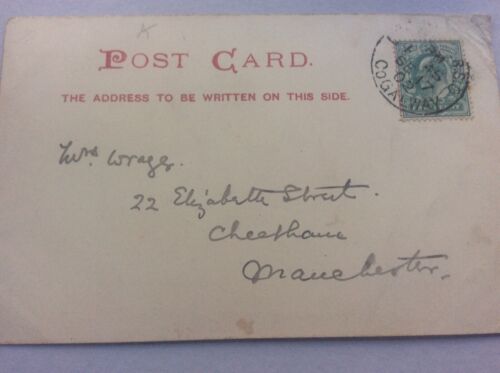 POST CARD.
THE ADDRESS TO BE WRITTEN ON THIS SIDE.
Mrs Wragg.
22 Elizabeth Street.
Cheetham
Manchester.
CO. GALWAY